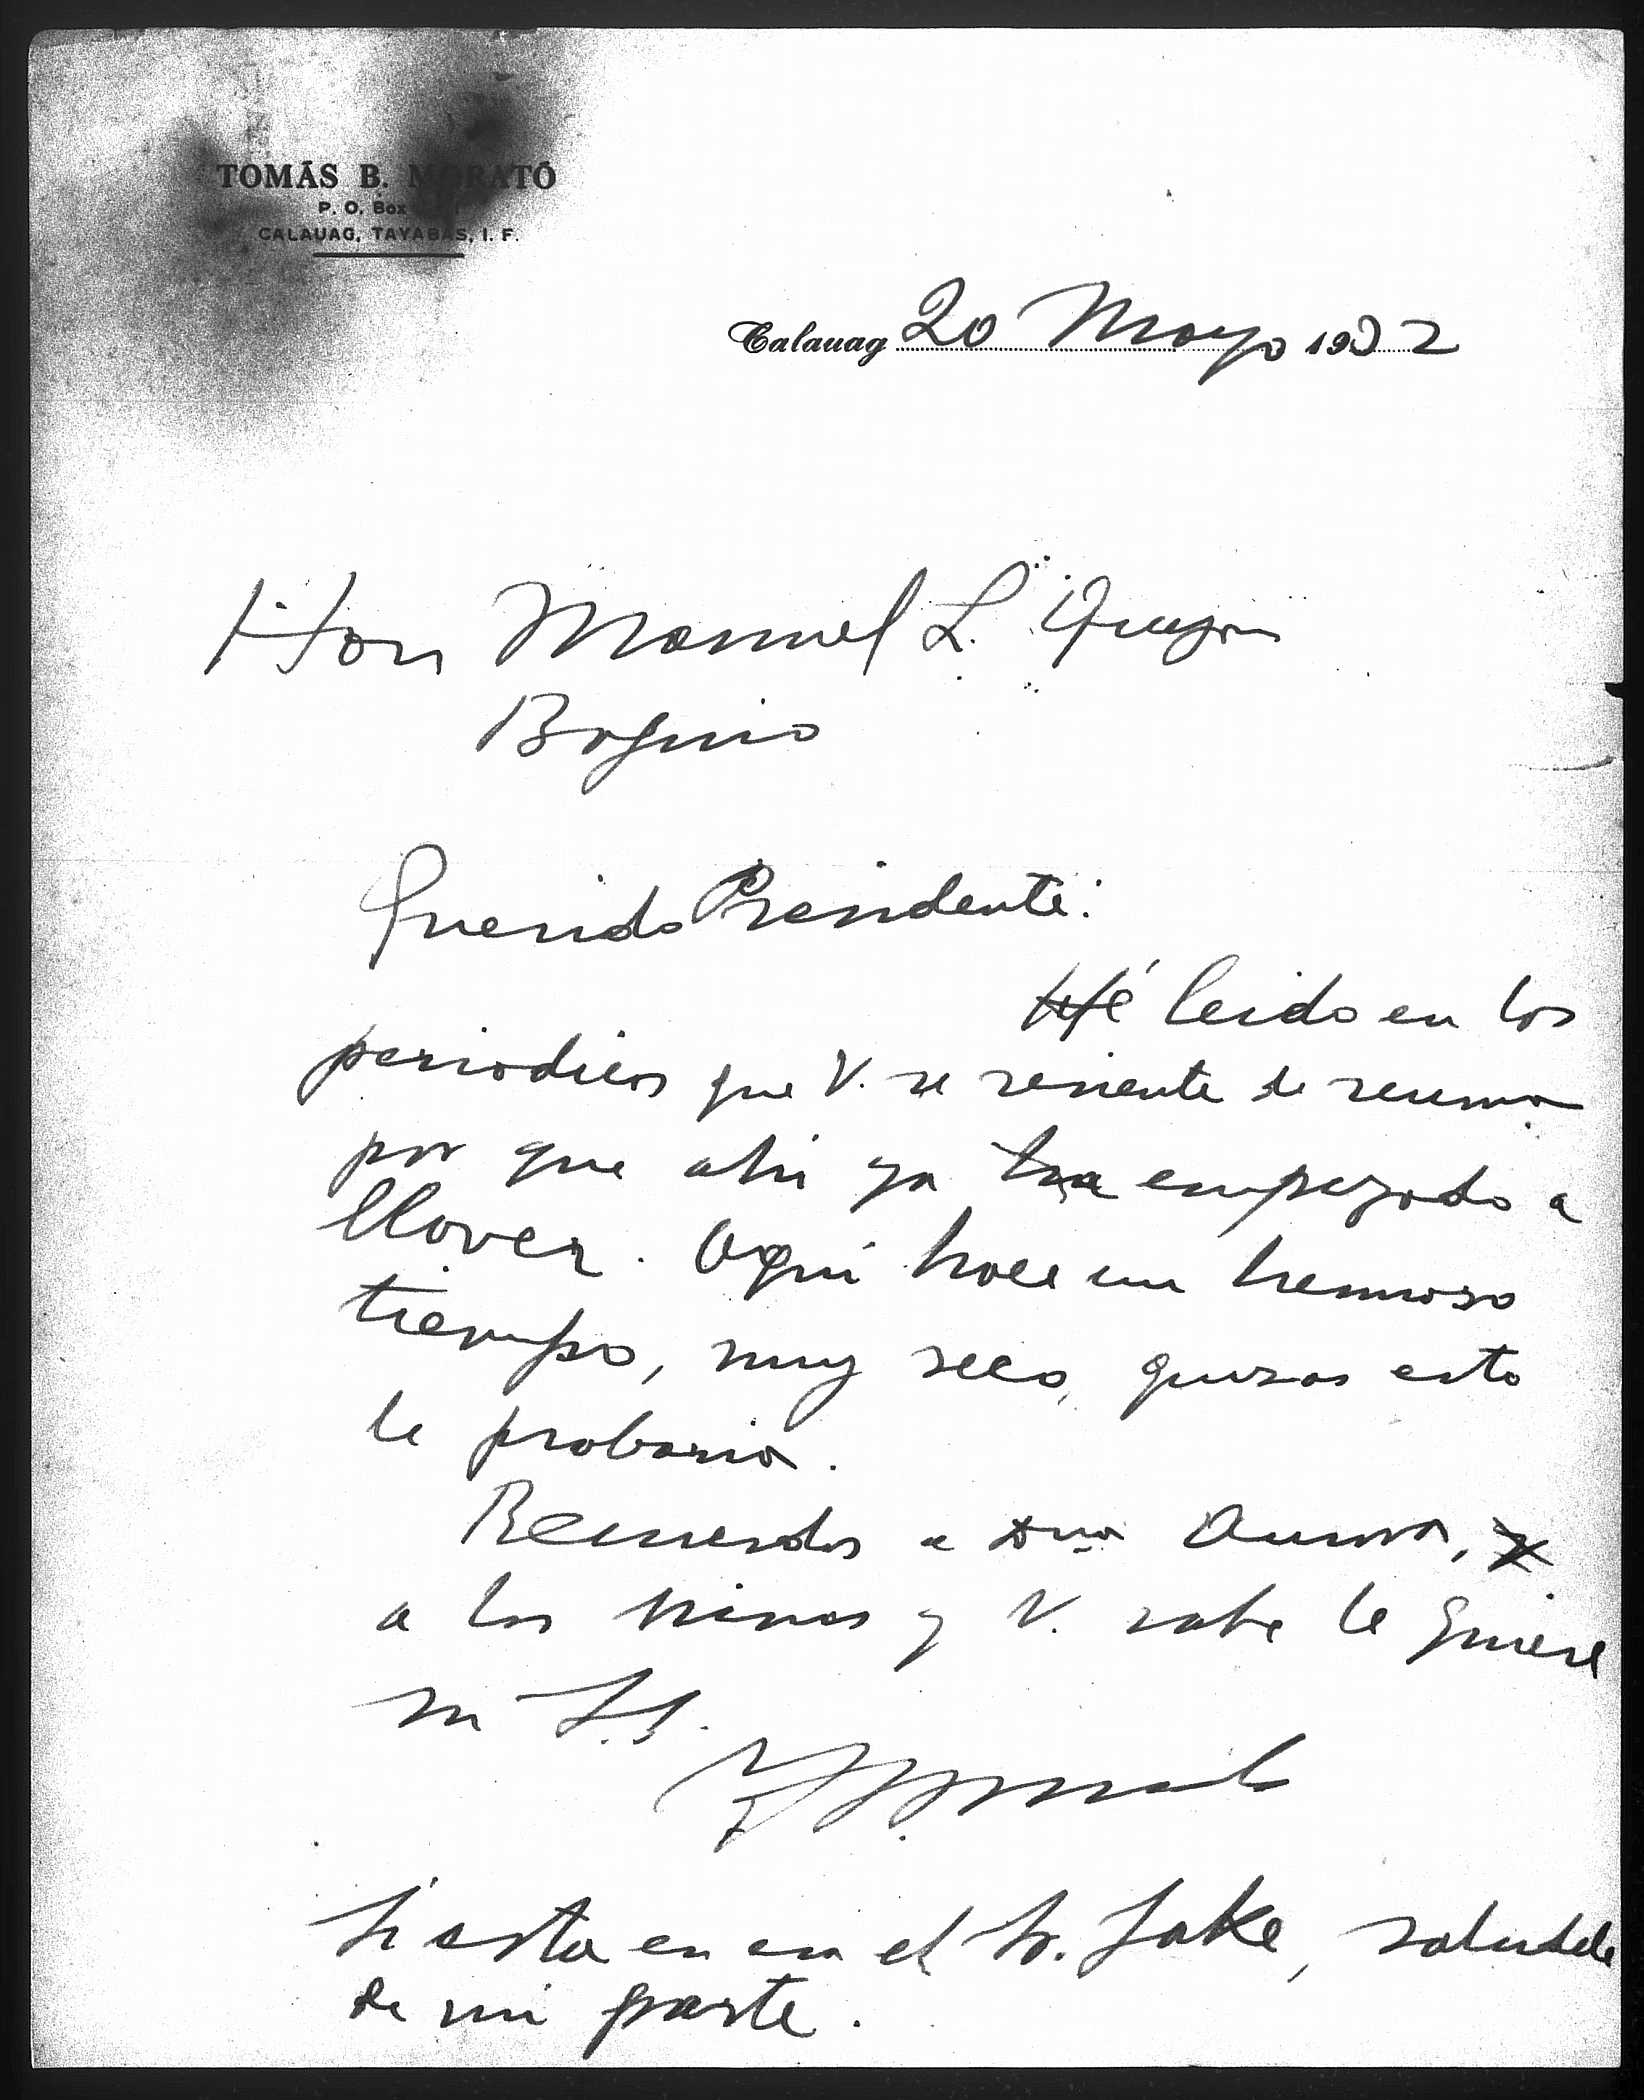 TOMÁS B. MORATÓ
P. O. Box
CALAUAG, TAYABAS, I. F.
Calauag 20 Mayo 1932
Hon Manuel L. Quezon
Baguio
Querido Presidente:
Hé leido en los
periodicos que V. se resiente de reuma
por que ahi ya ha empezado a
llover. Aqui hace un hermoso
tiempo, muy seco, quizas esto
le probaria.
Recuerdos a Dña Aurora,
a los niños y V. sabe le quiere
su S.S.
TBMorato
Si esta en esa el Sr. Jake, saludele
de mi parte.